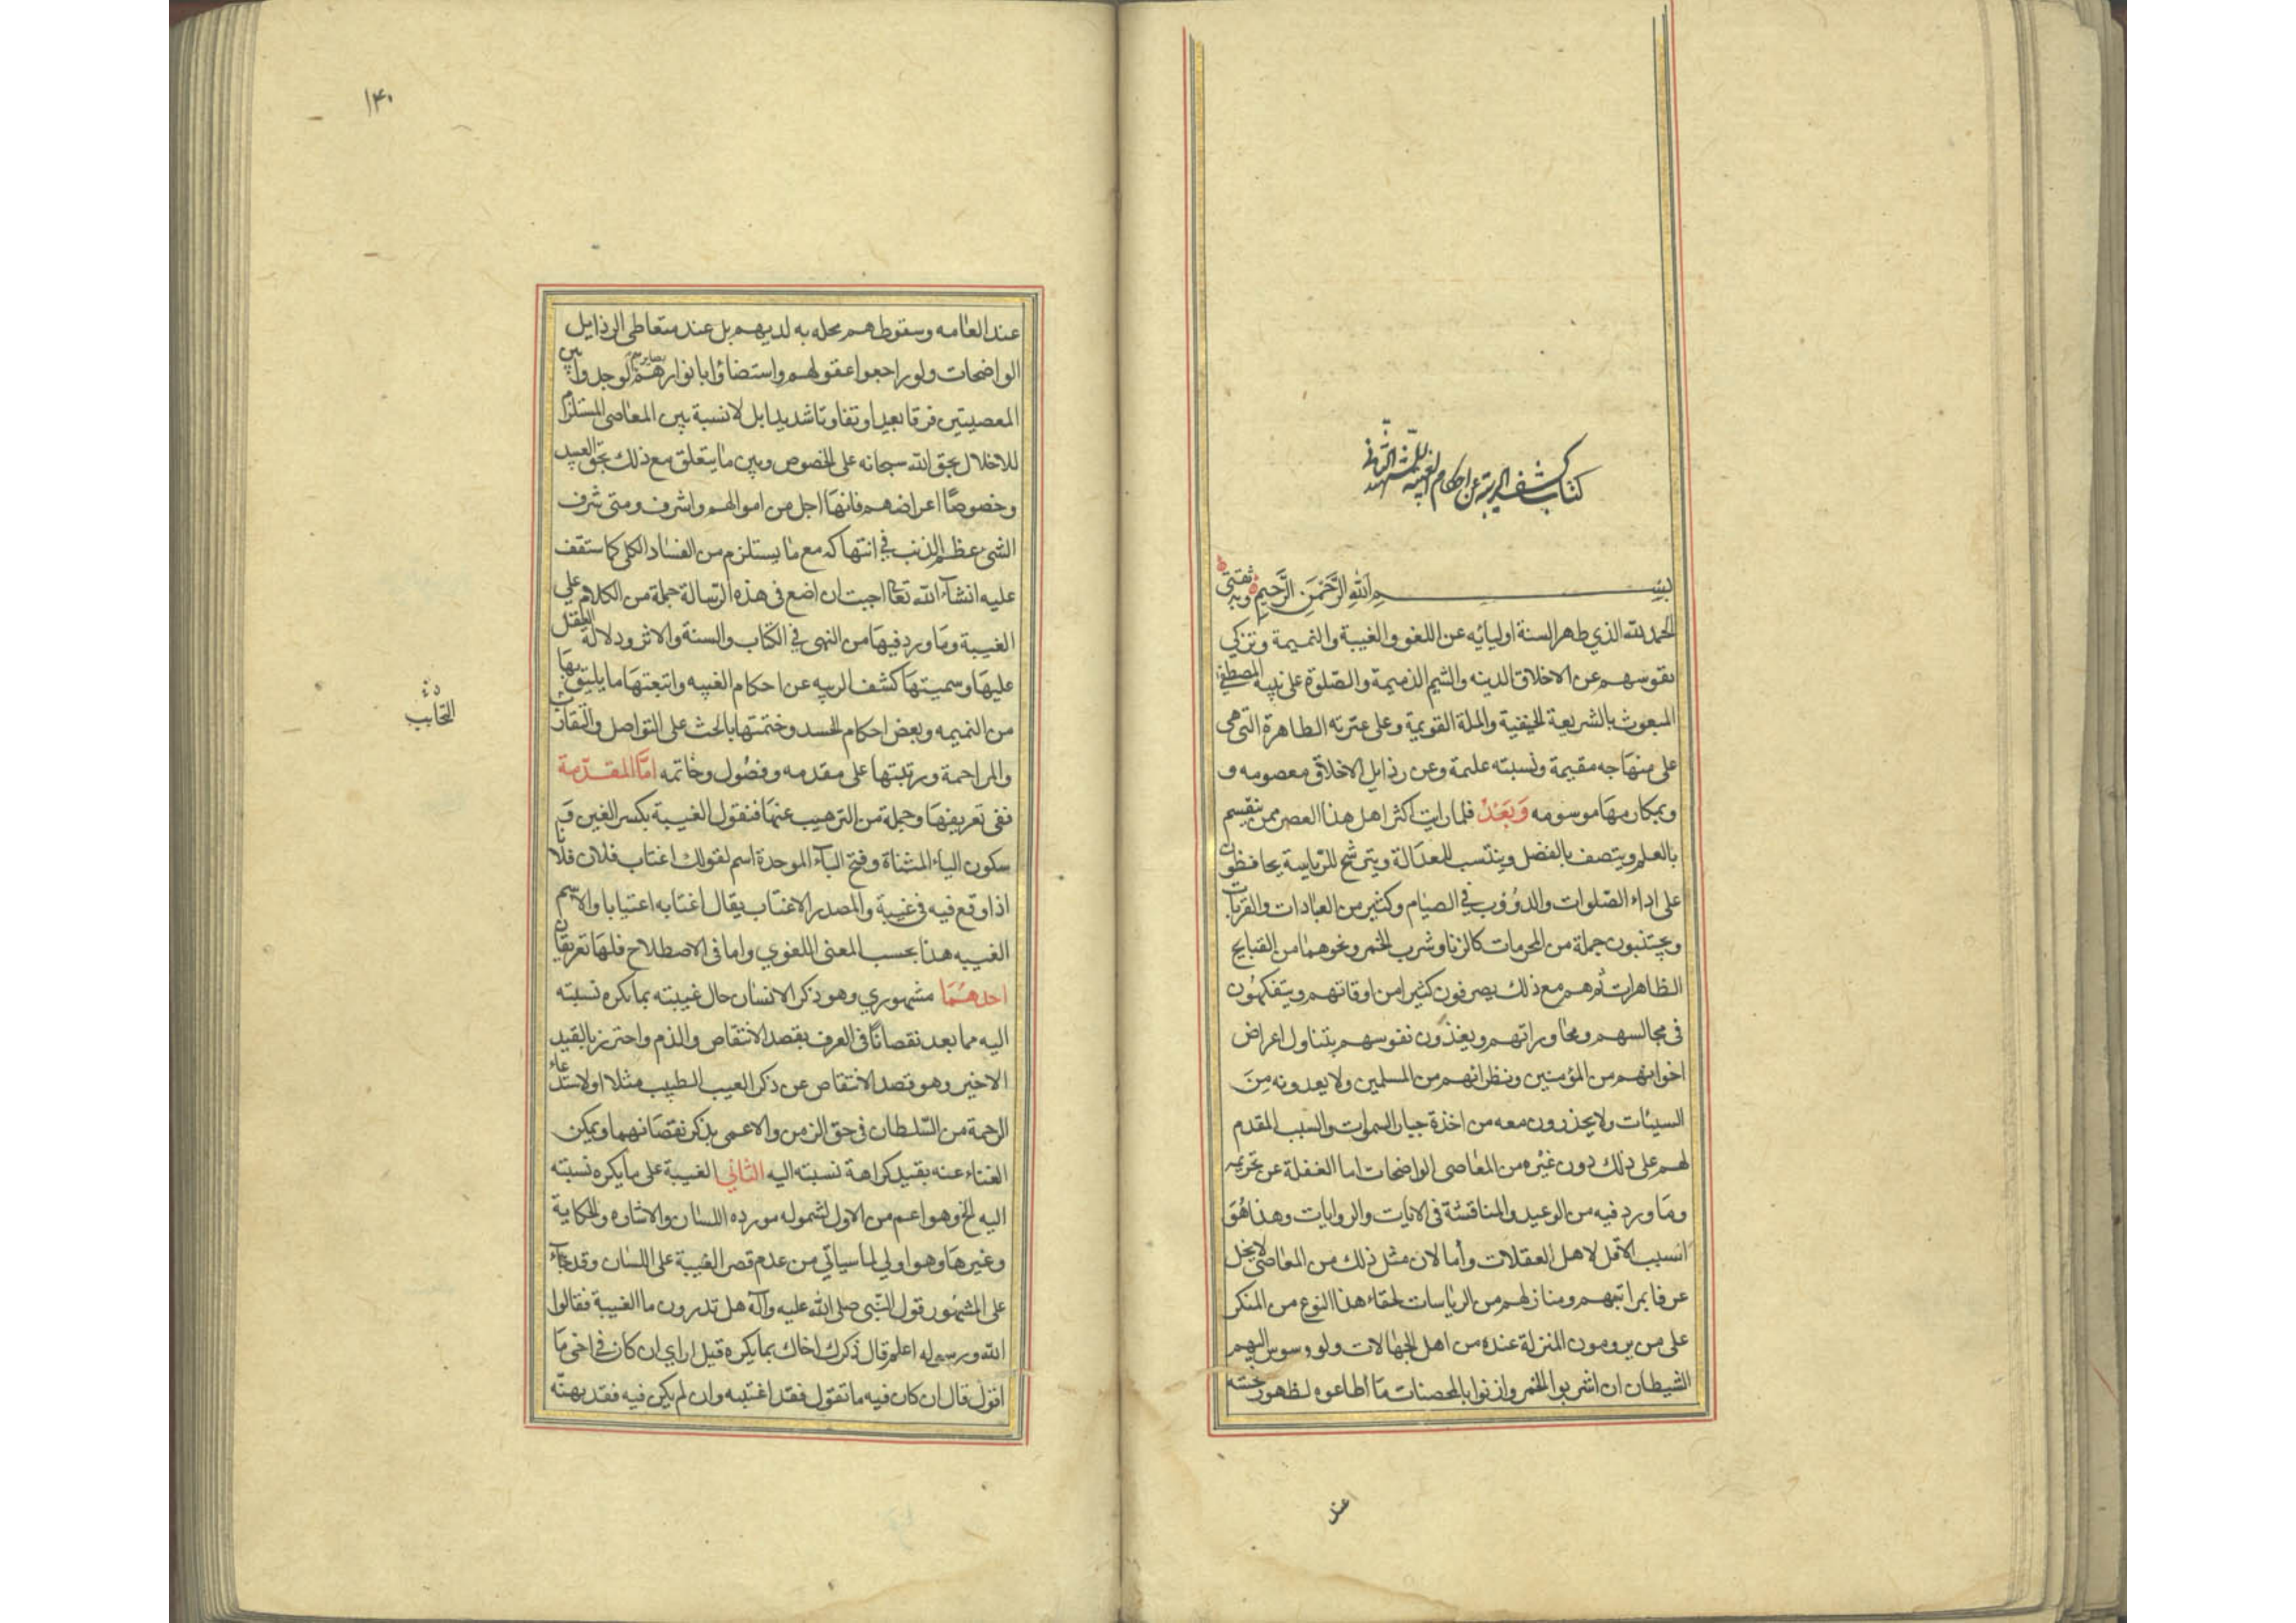 كتاب كشف الريبة عن احكام الغيبة للشهيد الثاني
بسم الله الرحمن الرحيم وبه ثقتي
الحمد لله الذي طهر السنة اوليائه عن اللغو والغيبة والنميمة وتزكي
نفوسهم عن الاخلاق الدنيه والشيم الذميمة والصلوة على نبيه المصطفى
المبعوث بالشريعة الحنيفية والملة القويمة وعلى عترته الطاهرة التي هي
على منهاجه مقيمة ونسبته عليمة وعن رذايل الاخلاق معصومه و
وبمكارمها موسومه وبعد فلما رايت اكثر اهل هذا العصر ممن يتسم
بالعلم ويتصف بالفضل وينتسب للعدالة ويترشح للرياسة يحافظون
على اداء الصلوات والدؤوب في الصيام وكثير من العبادات والقربات
ويجتنبون جملة من المحرمات كالزنا وشرب الخمر ونحوهما من القبايح
الظاهرات ثم هم مع ذلك يصرفون كثيرا من اوقاتهم ويتفكهون
في مجالسهم ومحاوراتهم ويغذون نفوسهم بتناول اعراض
اخوانهم من المؤمنين ونظرائهم من المسلمين ولا يعدونه من
السيئات ولا يحذرون معه من اخذة جبار السموات والسبب المقدم
لهم على ذلك دون غيره من المعاصي الواضحات اما الغفلة عن تحريمه
وما ورد فيه من الوعيد والمناقشة في الايات والروايات وهذا هو
السبب الاقل لاهل العقلات وأما لان مثل ذلك من المعاصي لا يخل
عرفا بمراتبهم ومنازلهم من الرياسات لخفاء هذا النوع من المنكر
على من يرومون المنزلة عنده من اهل الجهالات ولو وسوس اليهم
الشيطان ان اشربوا الخمر وازنوا بالمحصنات ما أطاعوه لظهور خسته
عند
١٤٠
عند العامه وسقوطهم محله به لديهم بل عند متعاطي الرذايل
الواضحات ولو راجعوا عقولهم واستضاؤا بانوار بصايرهم لوجدوا بين
المعصيتين فرقا بعيدا وتفاوتا شديدا بل لا نسبة بين المعاصي المستلزم
للاخلال بحق الله سبحانه على الخصوص وبين ما يتعلق مع ذلك بحق العبيد
وخصوصا اعراضهم فانها اجل من اموالهم واشرف ومتى شرف
الشئ عظم الذنب في انتهاكه مع ما يستلزم من الفساد الكلي كما ستقف
عليه انشاء الله تعا احببت ان اضع في هذه الرسالة جملة من الكلام على
الغيبة وما ورد فيها من النهى في الكتاب والسنة والاثر ودلالة العقل
عليها وسميتها كشف الريبه عن احكام الغيبه واتبعتها ما يليق بها
من النميمه وبعض احكام الحسد وختمتها بالحث على التواصل والتقارب
التحابب
والمراحمة ورتبتها على مقدمه وفصول وخاتمه اما المقدمة
ففي تعريفها وجملة من الترهيب عنها فنقول الغيبة بكسر الغين و
سكون الياء المثناة وفتح الباء الموحدة اسم لقولك اغتاب فلان فلانا
اذا وقع فيه في غيبة والمصدر الاغتاب يقال اغتابه اغتيابا والاسم
الغيبه هذا بحسب المعنى اللغوي واما في الاصطلاح فلها تعريفان
احدهما مشهوري وهو ذكر الانسان حال غيبته بما يكره نسبته
اليه مما يعد نقصانا في العرف بقصد الانتقاص والذم واحترز بالقيد
الاخير وهو قصد الانتقاص عن ذكر العيب للطبيب مثلا او لاستدعاء
الرحمة من السلطان في حق الزمن والاعمى بذكر نقصانهما ويمكن
الغناء عنه بقيد كراهة نسبته اليه الثاني الغيبة على ما يكره نسبته
اليه الخ وهو اعم من الاول لشموله مورده اللسان والاشاره والحكاية
وغيرها وهو اولي لما سياتي من عدم قصر الغيبة على اللسان وقد جاء
على المشهور قول النبي صلى الله عليه وآله هل تدرون ما الغيبة فقالوا
الله ورسوله اعلم قال ذكرك اخاك بما يكره قيل ارايت ان كان في اخي ما
اقول قال ان كان فيه ما تقول فقد اغتبته وان لم يكن فيه فقد بهته